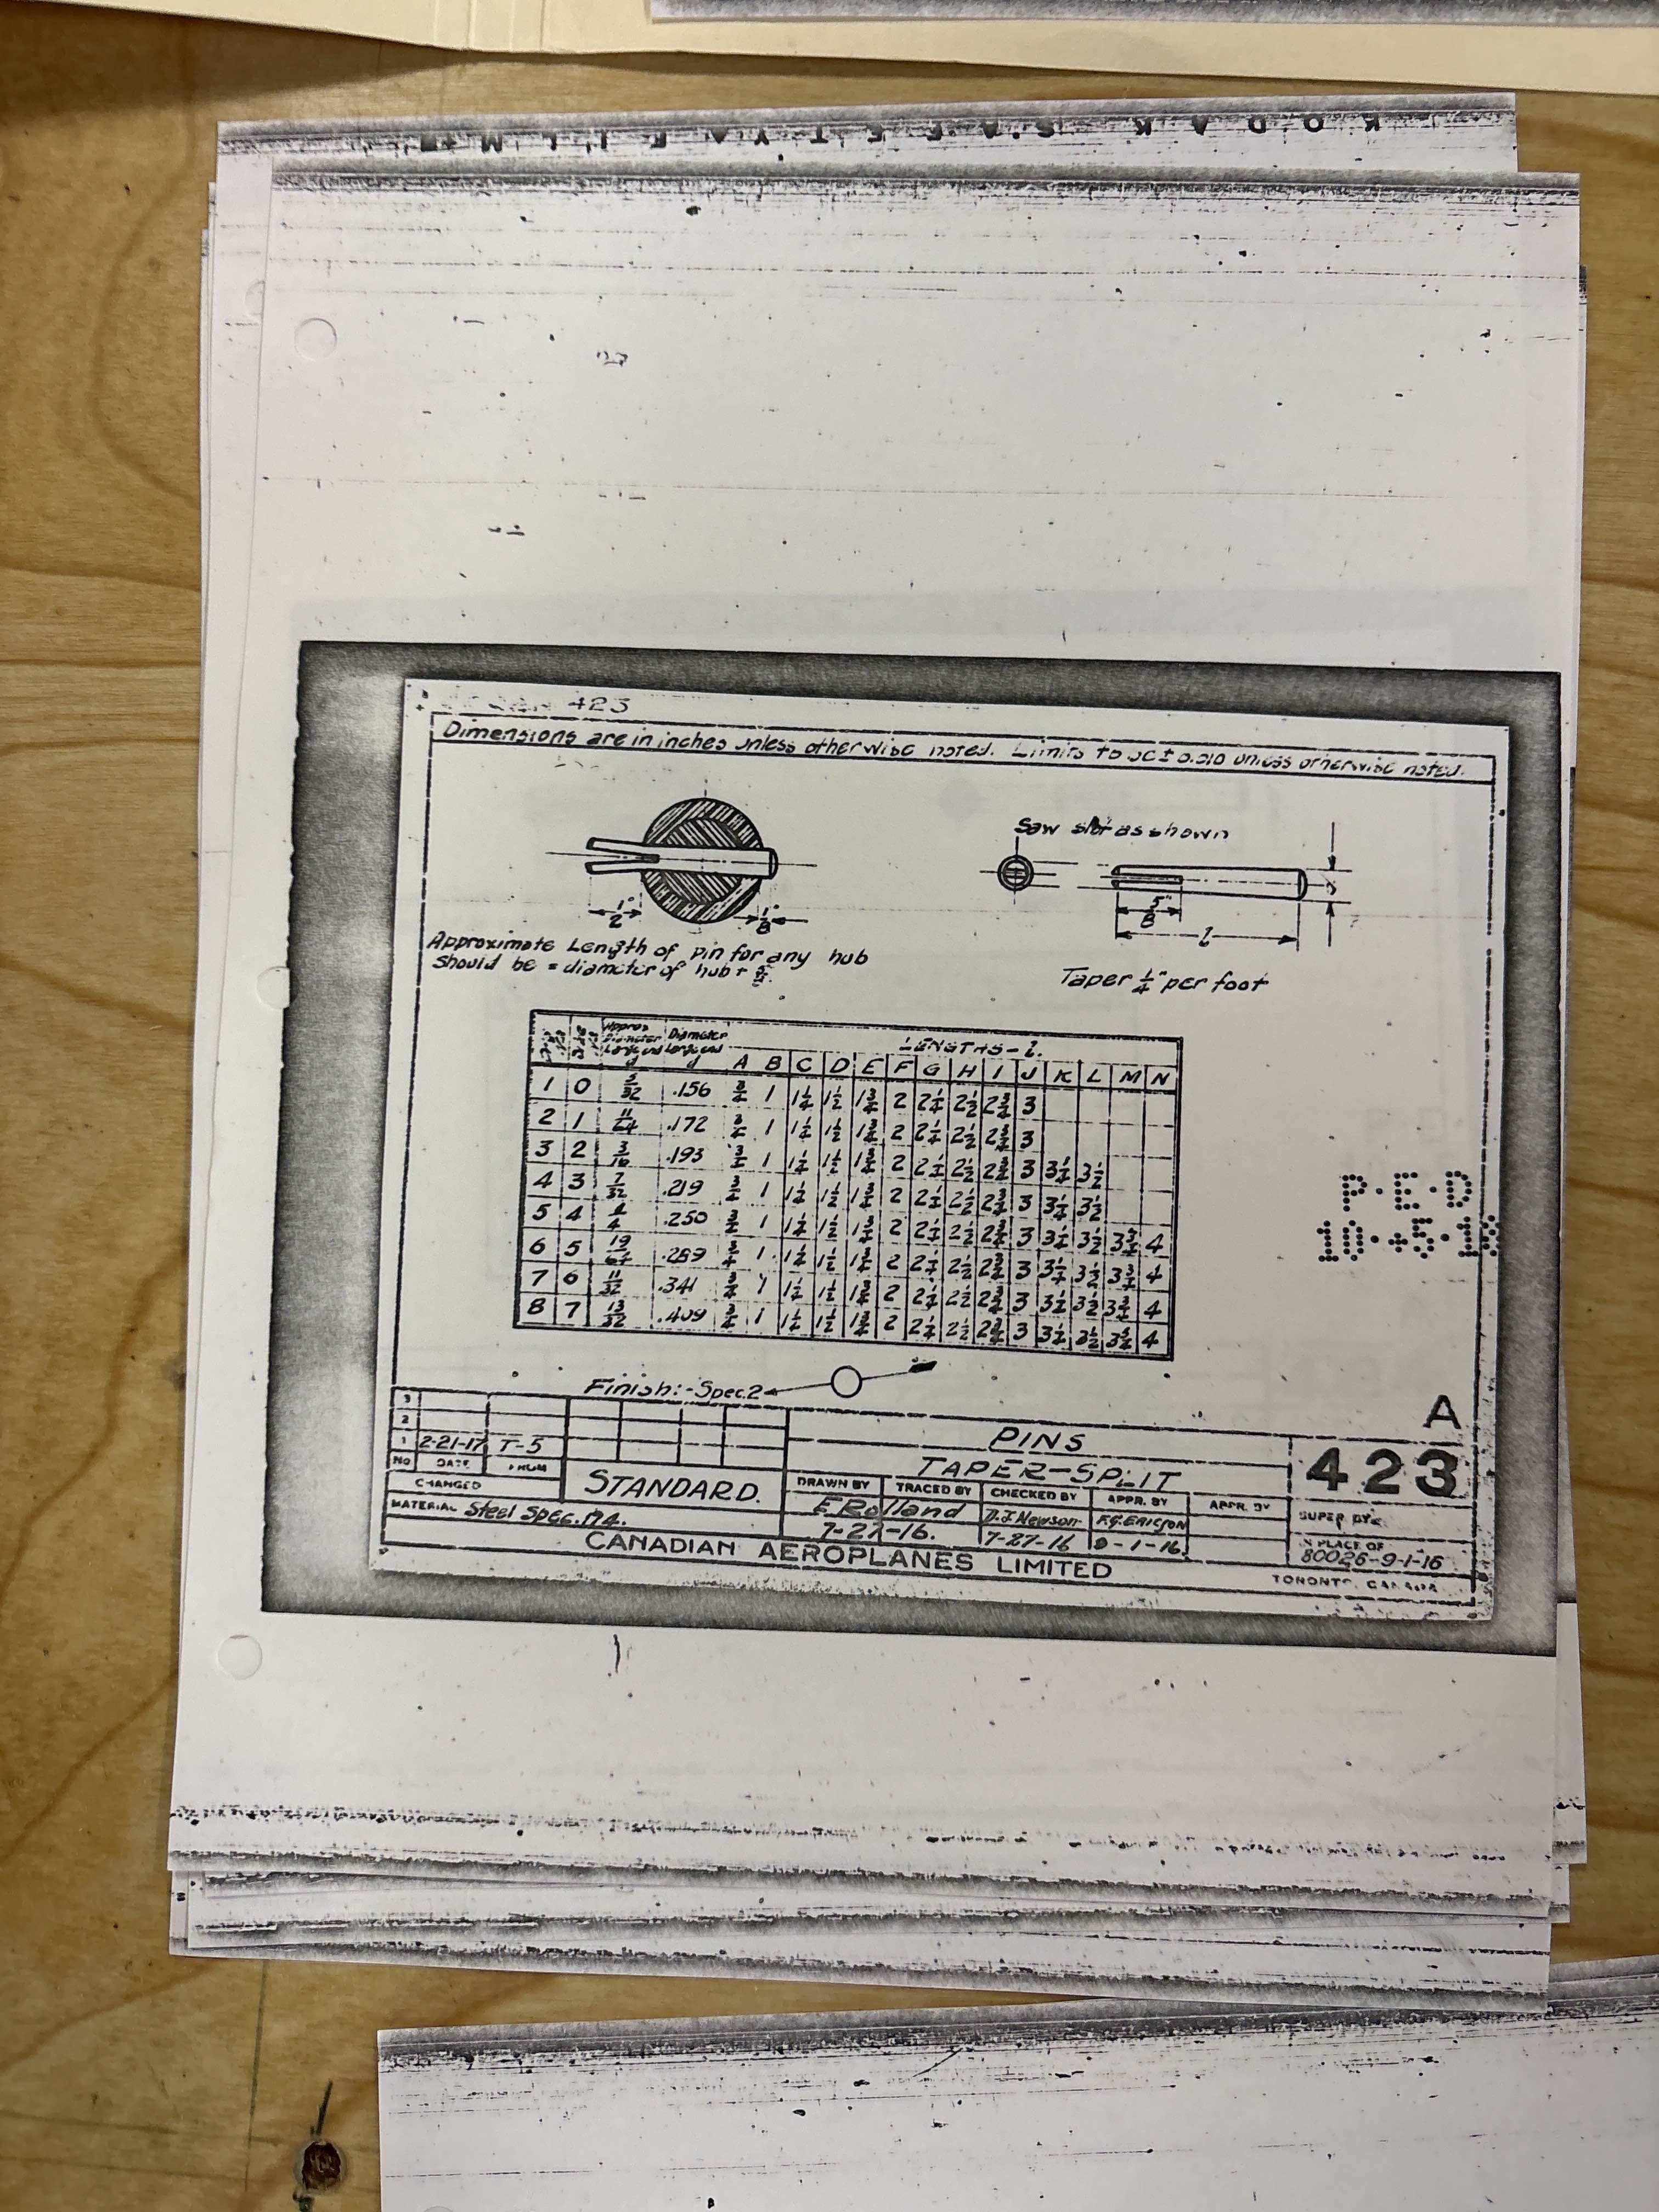 KODAK SAFETY FILM
423
Dimensions are in inches unless otherwise noted. Limits to be ± 0.010 unless otherwise noted.
Saw slot as shown
1/2" 1/8"
5/8"
l
Approximate Length of pin for any hub
should be = diameter of hub + 5/8".
Taper 1/4" per foot
Approx Diameter Large end d Diameter Large end d LENGTHS - l.
A B C D E F G H I J K L M N
1 0 5/32 .156 3/4 1 1 1/4 1 1/2 1 3/4 2 2 1/4 2 1/2 2 3/4 3
2 1 11/64 .172 3/4 1 1 1/4 1 1/2 1 3/4 2 2 1/4 2 1/2 2 3/4 3
3 2 3/16 .193 3/4 1 1 1/4 1 1/2 1 3/4 2 2 1/4 2 1/2 2 3/4 3 3 1/4 3 1/2
4 3 7/32 .219 3/4 1 1 1/4 1 1/2 1 3/4 2 2 1/4 2 1/2 2 3/4 3 3 1/4 3 1/2
5 4 1/4 .250 3/4 1 1 1/4 1 1/2 1 3/4 2 2 1/4 2 1/2 2 3/4 3 3 1/4 3 1/2 3 3/4 4
6 5 19/64 .289 3/4 1 1 1/4 1 1/2 1 3/4 2 2 1/4 2 1/2 2 3/4 3 3 1/4 3 1/2 3 3/4 4
7 6 11/32 .341 3/4 1 1 1/4 1 1/2 1 3/4 2 2 1/4 2 1/2 2 3/4 3 3 1/4 3 1/2 3 3/4 4
8 7 13/32 .409 3/4 1 1 1/4 1 1/2 1 3/4 2 2 1/4 2 1/2 2 3/4 3 3 1/4 3 1/2 3 3/4 4
P·E·D
10-·5-1
Finish:-Spec.2
A
3
2
1 2-21-17 T-5
NO DATE FROM
CHANGED
MATERIAL Steel Spec. 174.
STANDARD.
PINS
TAPER-SPLIT
DRAWN BY TRACED BY CHECKED BY APPR. BY APPR. BY
E Rolland D.J. Newson F.G. ERICSON
7-27-16. 7-27-16 9-1-16.
423
SUPER BY
IN PLACE OF
80026-9-1-16
CANADIAN AEROPLANES LIMITED
TORONTO, CANADA